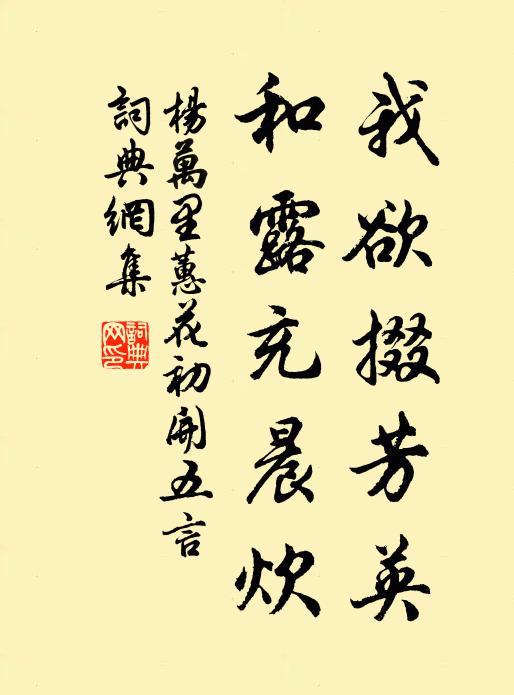 我欲掇芳英
和露充晨炊
楊萬里蕙花初開五言
詞典網集
詞典
网印